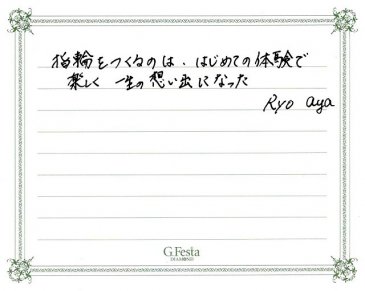 指輪をつくるのは、はじめての体験で
楽しく 一生の想い出になった
Ryo aya
G.Festa
DIAMOND